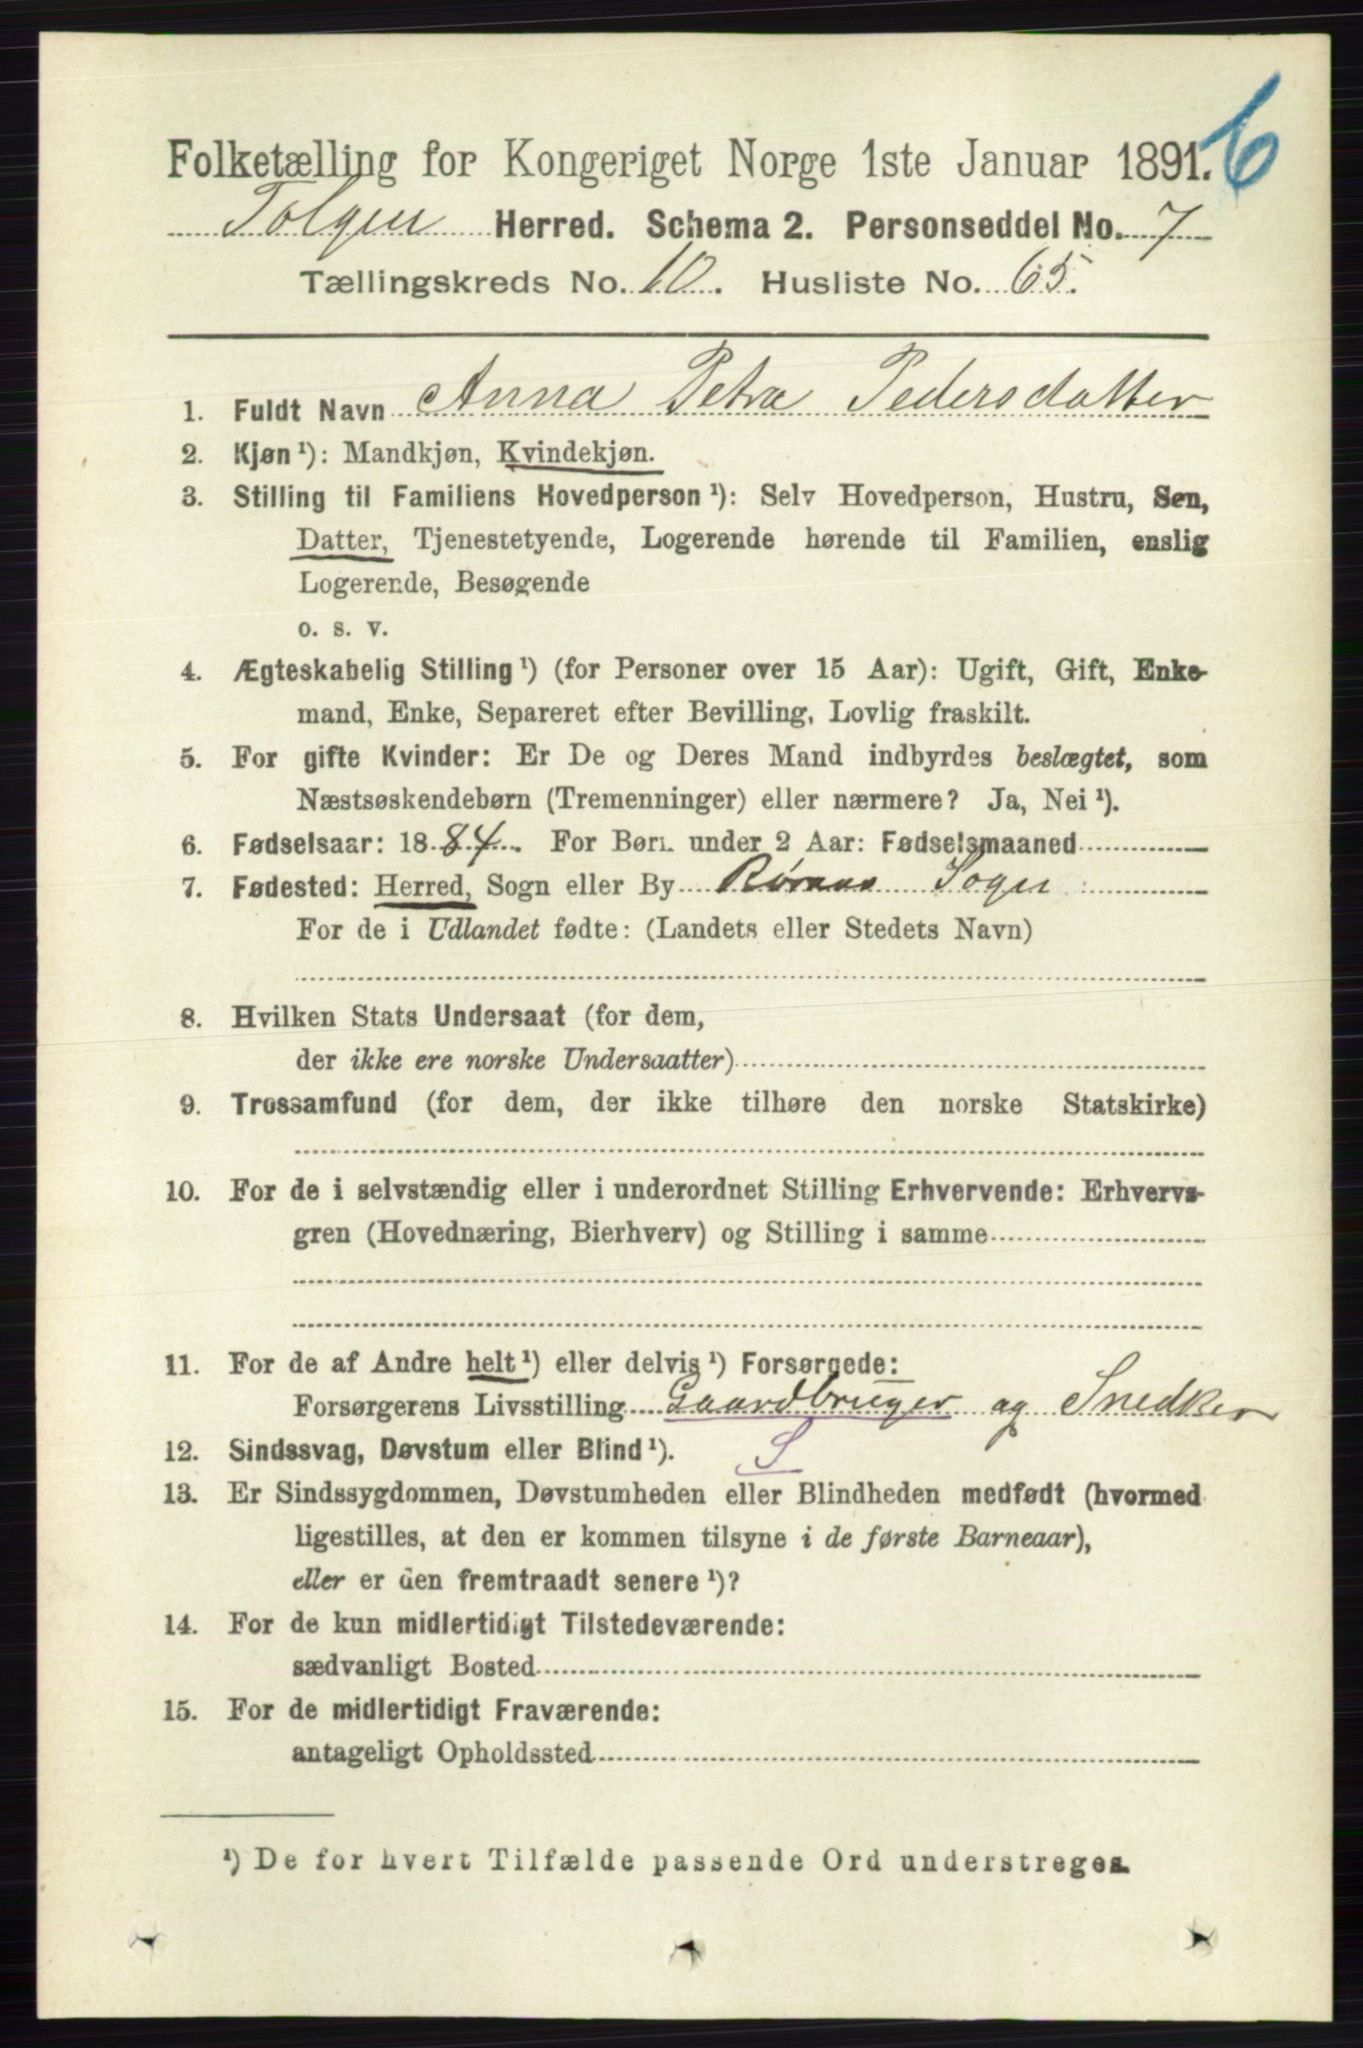 6
Folketælling for Kongeriget Norge 1ste Januar 1891.
Tolgen Herred. Schema 2. Personseddel No. 7
Tællingskreds No. 10. Husliste No. 65.
1. Fuldt Navn Anna Petra Pedersdatter
2. Kjøn¹): Mandkjøn, Kvindekjøn.
3. Stilling til Familiens Hovedperson¹): Selv Hovedperson, Hustru, Søn,
Datter, Tjenestetyende, Logerende hørende til Familien, enslig
Logerende, Besøgende
o. s. v.
4. Ægteskabelig Stilling¹) (for Personer over 15 Aar): Ugift, Gift, Enke-
mand, Enke, Separeret efter Bevilling, Lovlig fraskilt.
5. For gifte Kvinder: Er De og Deres Mand indbyrdes beslægtet, som
Næstsøskendebørn (Tremenninger) eller nærmere? Ja, Nei¹).
6. Fødselsaar: 1884. For Børn under 2 Aar: Fødselsmaaned
7. Fødested: Herred, Sogn eller By Røraas Sogn
For de i Udlandet fødte: (Landets eller Stedets Navn)
8. Hvilken Stats Undersaat (for dem,
der ikke ere norske Undersaatter)
9. Trossamfund (for dem, der ikke tilhøre den norske Statskirke)
10. For de i selvstændig eller i underordnet Stilling Erhvervende: Erhvervs-
gren (Hovednæring, Bierhverv) og Stilling i samme
11. For de af Andre helt¹) eller delvis¹) Forsørgede:
Forsørgerens Livsstilling Gaardbruger og Snedker
12. Sindssvag, Døvstum eller Blind¹). S
13. Er Sindssygdommen, Døvstumheden eller Blindheden medfødt (hvormed
ligestilles, at den er kommen tilsyne i de første Barneaar),
eller er den fremtraadt senere¹)?
14. For de kun midlertidigt Tilstedeværende:
sædvanligt Bosted
15. For de midlertidigt Fraværende:
antageligt Opholdssted
¹) De for hvert Tilfælde passende Ord understreges.